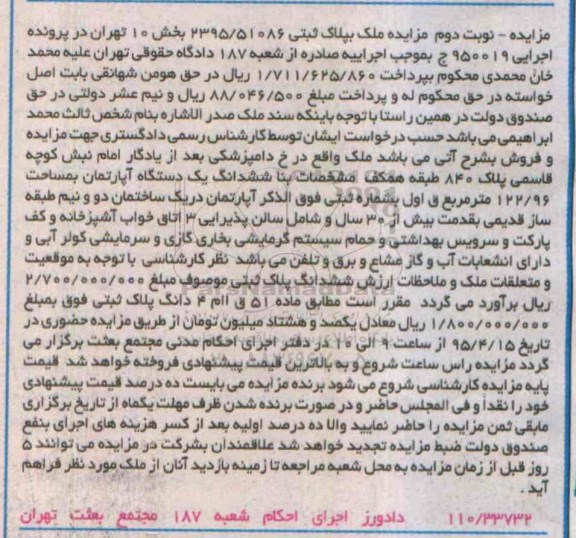 مزایده - نوبت دوم مزایده ملک بپلاک ثبتی ۲۳۹۵/۵۱۰۸۶ بخش ۱۰ تهران در پرونده
اجرایی ۹۵۰۰۱۹ ج بموجب اجراییه صادره از شعبه ۱۸۷ دادگاه حقوقی تهران علیه محمد
خان محمدی محکوم بپرداخت ۱/۷۱۱/۶۲۵/۸۶۰ ریال در حق هومن شهانقی بابت اصل
خواسته در حق محکوم له و پرداخت مبلغ ۸۸/۰۴۶/۵۰۰ ریال و نیم عشر دولتی در حق
صندوق دولت در همین راستا با توجه باینکه سند ملک صدر الاشاره بنام شخص ثالث محمد
ابراهیمی می باشد حسب درخواست ایشان توسط کارشناس رسمی دادگستری جهت مزایده
و فروش بشرح آتی می باشد ملک واقع در خ دامپزشکی بعد از یادگار امام نبش کوچه
قاسمی پلاک ۸۴۰ طبقه همکف مشخصات بنا ششدانگ یک دستگاه آپارتمان بمساحت
۱۲۲/۹۶ مترمربع ق اول بشماره ثبتی فوق الذکر آپارتمان دریک ساختمان دو و نیم طبقه
ساز قدیمی بقدمت بیش از ۳۰ سال و شامل سالن پذیرایی ۳ اتاق خواب آشپزخانه و کف
پارکت و سرویس بهداشتی و حمام سیستم گرمایشی بخاری گازی و سرمایشی کولر آبی و
دارای انشعابات آب و گاز مشاع و برق و تلفن می باشد نظر کارشناسی با توجه به موقعیت
و متعلقات ملک و ملاحظات ارزش ششدانگ پلاک ثبتی موصوف مبلغ ۲/۷۰۰/۰۰۰/۰۰۰
ریال برآورد می گردد مقرر است مطابق ماده ۵۱ ق اام ۴ دانگ پلاک ثبتی فوق بمبلغ
۱/۸۰۰/۰۰۰/۰۰۰ ریال معادل یکصد و هشتاد میلیون تومان از طریق مزایده حضوری در
تاریخ ۹۵/۴/۱۵ از ساعت ۹ الی ۱۰ در دفتر اجرای احکام مدنی مجتمع بعثت برگزار می
گردد مزایده راس ساعت شروع و به بالاترین قیمت پیشنهادی فروخته خواهد شد قیمت
پایه مزایده کارشناسی شروع می شود برنده مزایده می بایست ده درصد قیمت پیشنهادی
خود را نقداً و فی المجلس حاضر و در صورت برنده شدن ظرف مهلت یکماه از تاریخ برگزاری
مابقی ثمن مزایده را حاضر نمایید والا ده درصد اولیه بعد از کسر هزینه های اجرای بنفع
صندوق دولت ضبط مزایده تجدید خواهد شد علاقمندان بشرکت در مزایده می توانند ۵
روز قبل از زمان مزایده به محل شعبه مراجعه تا زمینه بازدید آنان از ملک مورد نظر فراهم
آید .
۱۱۰/۳۳۷۳۲ دادورز اجرای احکام شعبه ۱۸۷ مجتمع بعثت تهران